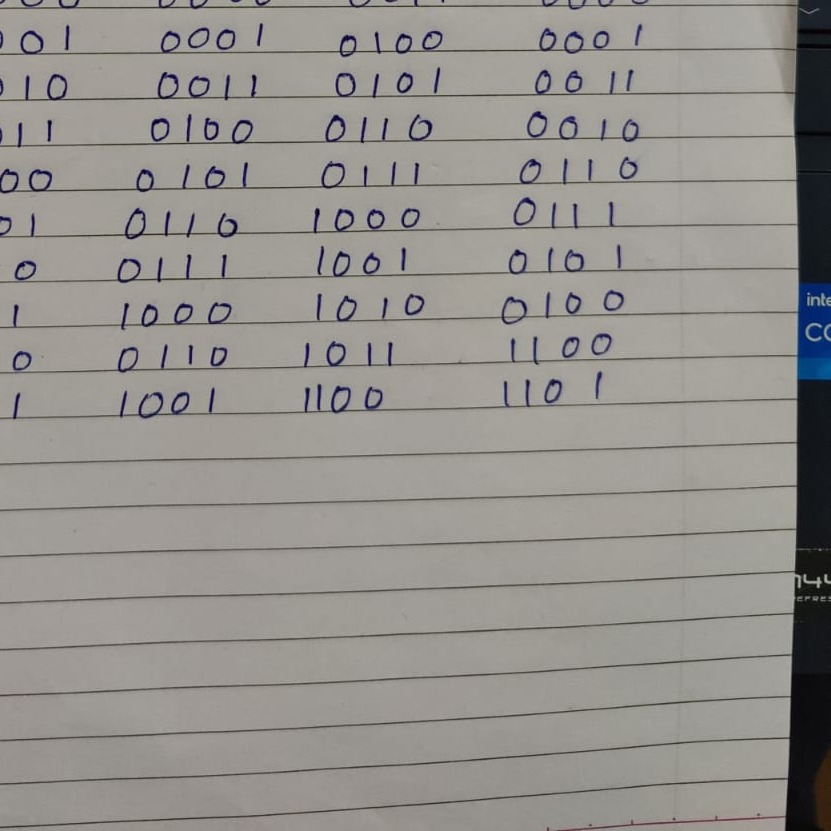 01 0001 0100 0001
10 0011 0101 0011
11 0100 0110 0010
00 0101 0111 0110
01 0110 1000 0111
0 0111 1001 0101
1 1000 1010 0100
0 0110 1011 1100
1 1001 1100 1101
inte